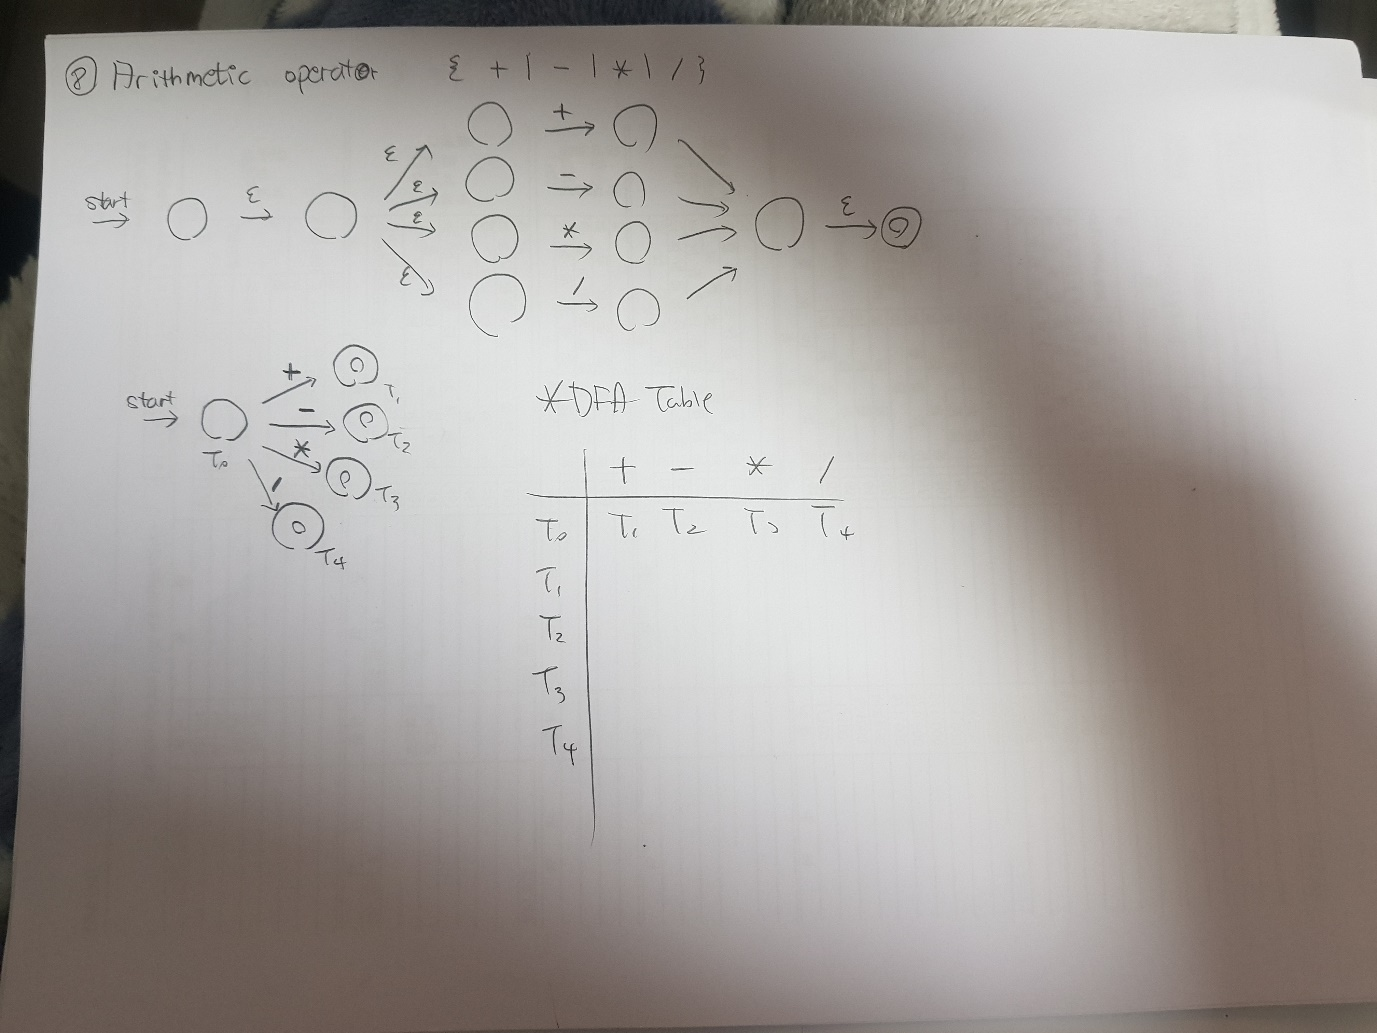 ⑧ Arithmetic operator { + | - | * | / }
ε + 
ε -
start ε ε * ε
ε /
start + T₁
- T₂
T₀ * T₃
/ T₄
*DFA Table
+ - * /
T₀ T₁ T₂ T₃ T₄
T₁
T₂
T₃
T₄